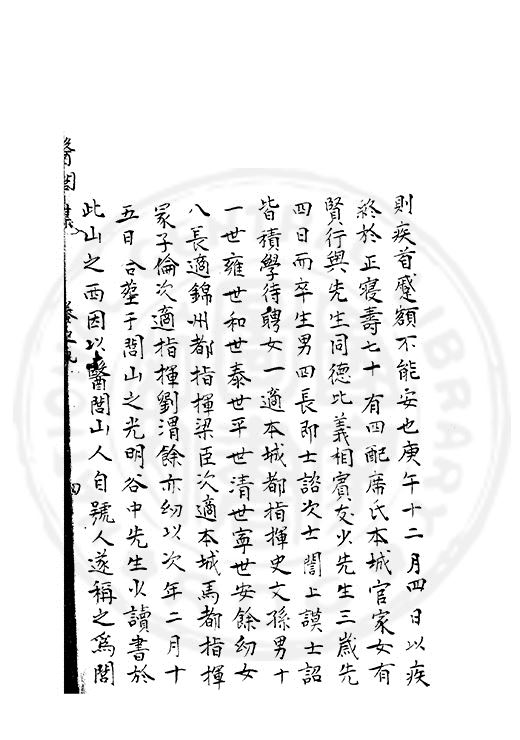 則疾首蹙額不能安也庚午十二月四日以疾
終於正寢壽七十有四配席氏本城官家女有
賢行與先生同德比義相賓友少先生三歲先
四日而卒生男四長即士諮次士誾士謨士詔
皆積學待聘女一適本城都指揮史文孫男十
一世雍世和世泰世平世清世寧世安餘幼女
八長適錦州都指揮梁臣次適本城馬都指揮
冢子倫次適指揮劉渭餘亦幼以次年二月十
五日合塟于閭山之光明谷中先生以讀書於
此山之西因以醫閭山人自號人遂稱之為閭
醫閭集